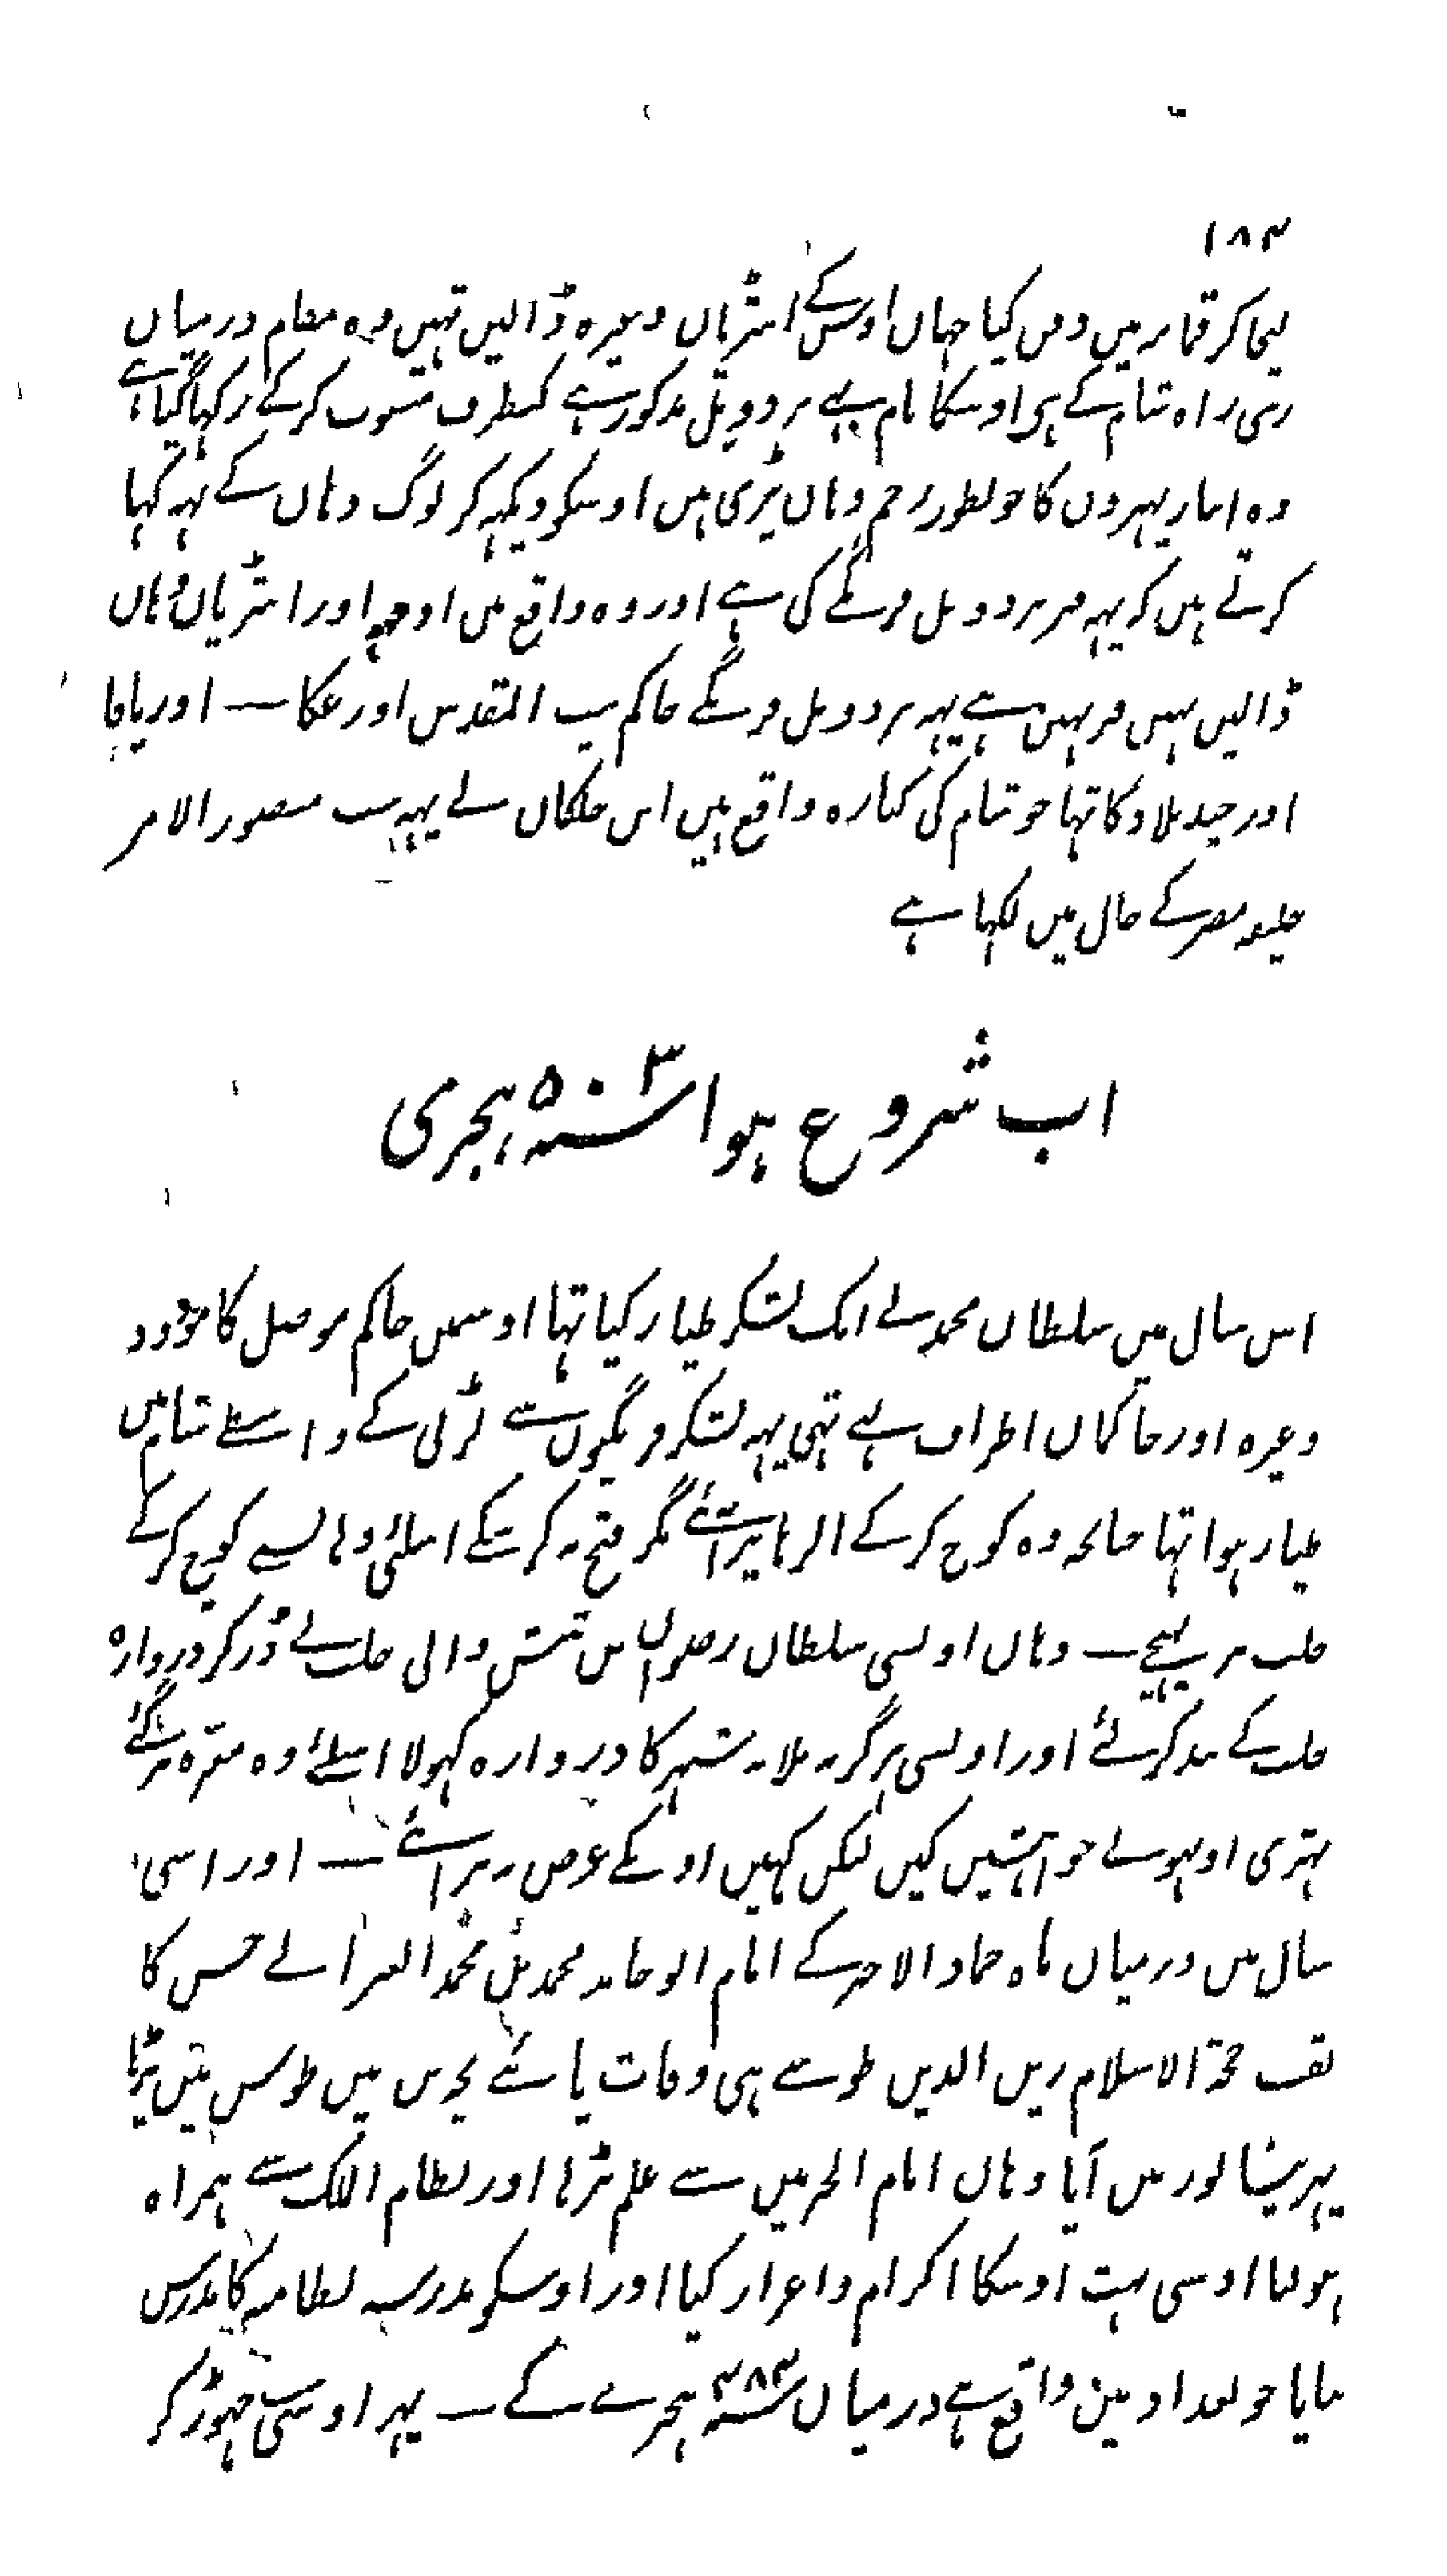 ۱۸۴
لیجا کر قمامہ میں دفن کیا جہاں اوسکے انتڑیاں وغیرہ ڈالیں تہیں وہ مقام درمیان
ریتی راہ شام کے ہی اوسکا نام بہی بردویل مذکور ہے کیطرف منسوب کرکے رکہا گیا ہے
وہ انبار پتہروں کا جو بطور رجم وہاں پڑی ہیں اوسکو دیکہہ کر لوگ وہاں کے یہہ کہا
کرتے ہیں کہ یہہ قبر بردویل فرنگے کی ہے اور وہ واقع میں اوجہہ اور انتڑیاں وہاں
ڈالیں ہیں قبر نہیں ہے یہہ بردویل فرنگے حاکم بیت المقدس اور عکا — اور یافا
اور چند بلاد کا تہا جو شام کی کنارہ واقع ہیں ابن خلکان نے یہہ سب منصور الامر
خلیفہ مصر کے حال میں لکہا ہے
اب شروع ہوا سنہ ۵۰۳ ہجری
اس سال میں سلطان محمد نے ایک لشکر طیار کیا تہا اوسمیں حاکم موصل کا مودود
وغیرہ اور حاکمان اطراف بہے تہی یہہ لشکر فرنگیوں سے لڑنی کے واسطے شام میں
طیار ہوا تہا چنانچہ وہ کوچ کرکے الرہا پر آئے مگر فتح نہ کر سکے اسلئی وہانسے کوچ کرکے
حلب پر پہنچے — وہاں اونسی سلطان رضوان بن تتش والی حلب نے ڈر کر دروازہ
حلب کے بند کرلئے اور اونسی ہرگز نہ ملا نہ شہر کا دروازہ کہولا اسلئے وہ معرہ پر گئے
بہتری اونہونے خواہشیں کیں لیکن کہیں اونکے غرض نہ بر آئے — اور اسی
سال میں درمیان ماہ جماد الاخر کے امام ابو حامد محمد بن محمد الغزالے جس کا
لقب حجۃ الاسلام زین الدین طوسے ہی وفات پائے بچپن میں طوس میں پڑہا
پہر نیشاپور میں آیا وہاں امام الحرمین سے علم پڑہا اور نظام الملک سے ہمراہ
ہو لیا اوسی بہت اوسکا اکرام و اعزاز کیا اور اوسکو مدرسہ نظامیہ کا مدرس
بنایا جو بغداد مین واقع ہے درمیان سنہ ۴۸۴ ہجرے کے — پہر اوسی چہوڑ کر